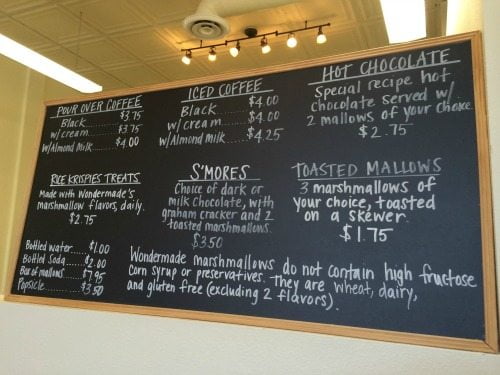 POUR OVER COFFEE
Black........$3.75
w/cream.....$3.75
w/Almond Milk...$4.00
ICED COFFEE
Black........$4.00
w/cream.....$4.00
w/Almond Milk....$4.25
HOT CHOCOLATE
Special recipe hot
chocolate served w/
2 mallows of your choice
$2.75
RICE KRISPIES TREATS
Made with Wondermade's
marshmallow flavors, daily.
$2.75
S'MORES
Choice of dark or
milk chocolate, with
graham cracker and 2
toasted marshmallows.
$3.50
TOASTED MALLOWS
3 marshmallows of
your choice, toasted
on a skewer.
$1.75
Bottled water....$1.00
Bottled Soda.....$2.00
Box of mallows...$7.95
Popsicle........$3.50
Wondermade marshmallows do not contain high fructose
corn syrup or preservatives. They are wheat, dairy,
and gluten free (excluding 2 flavors).